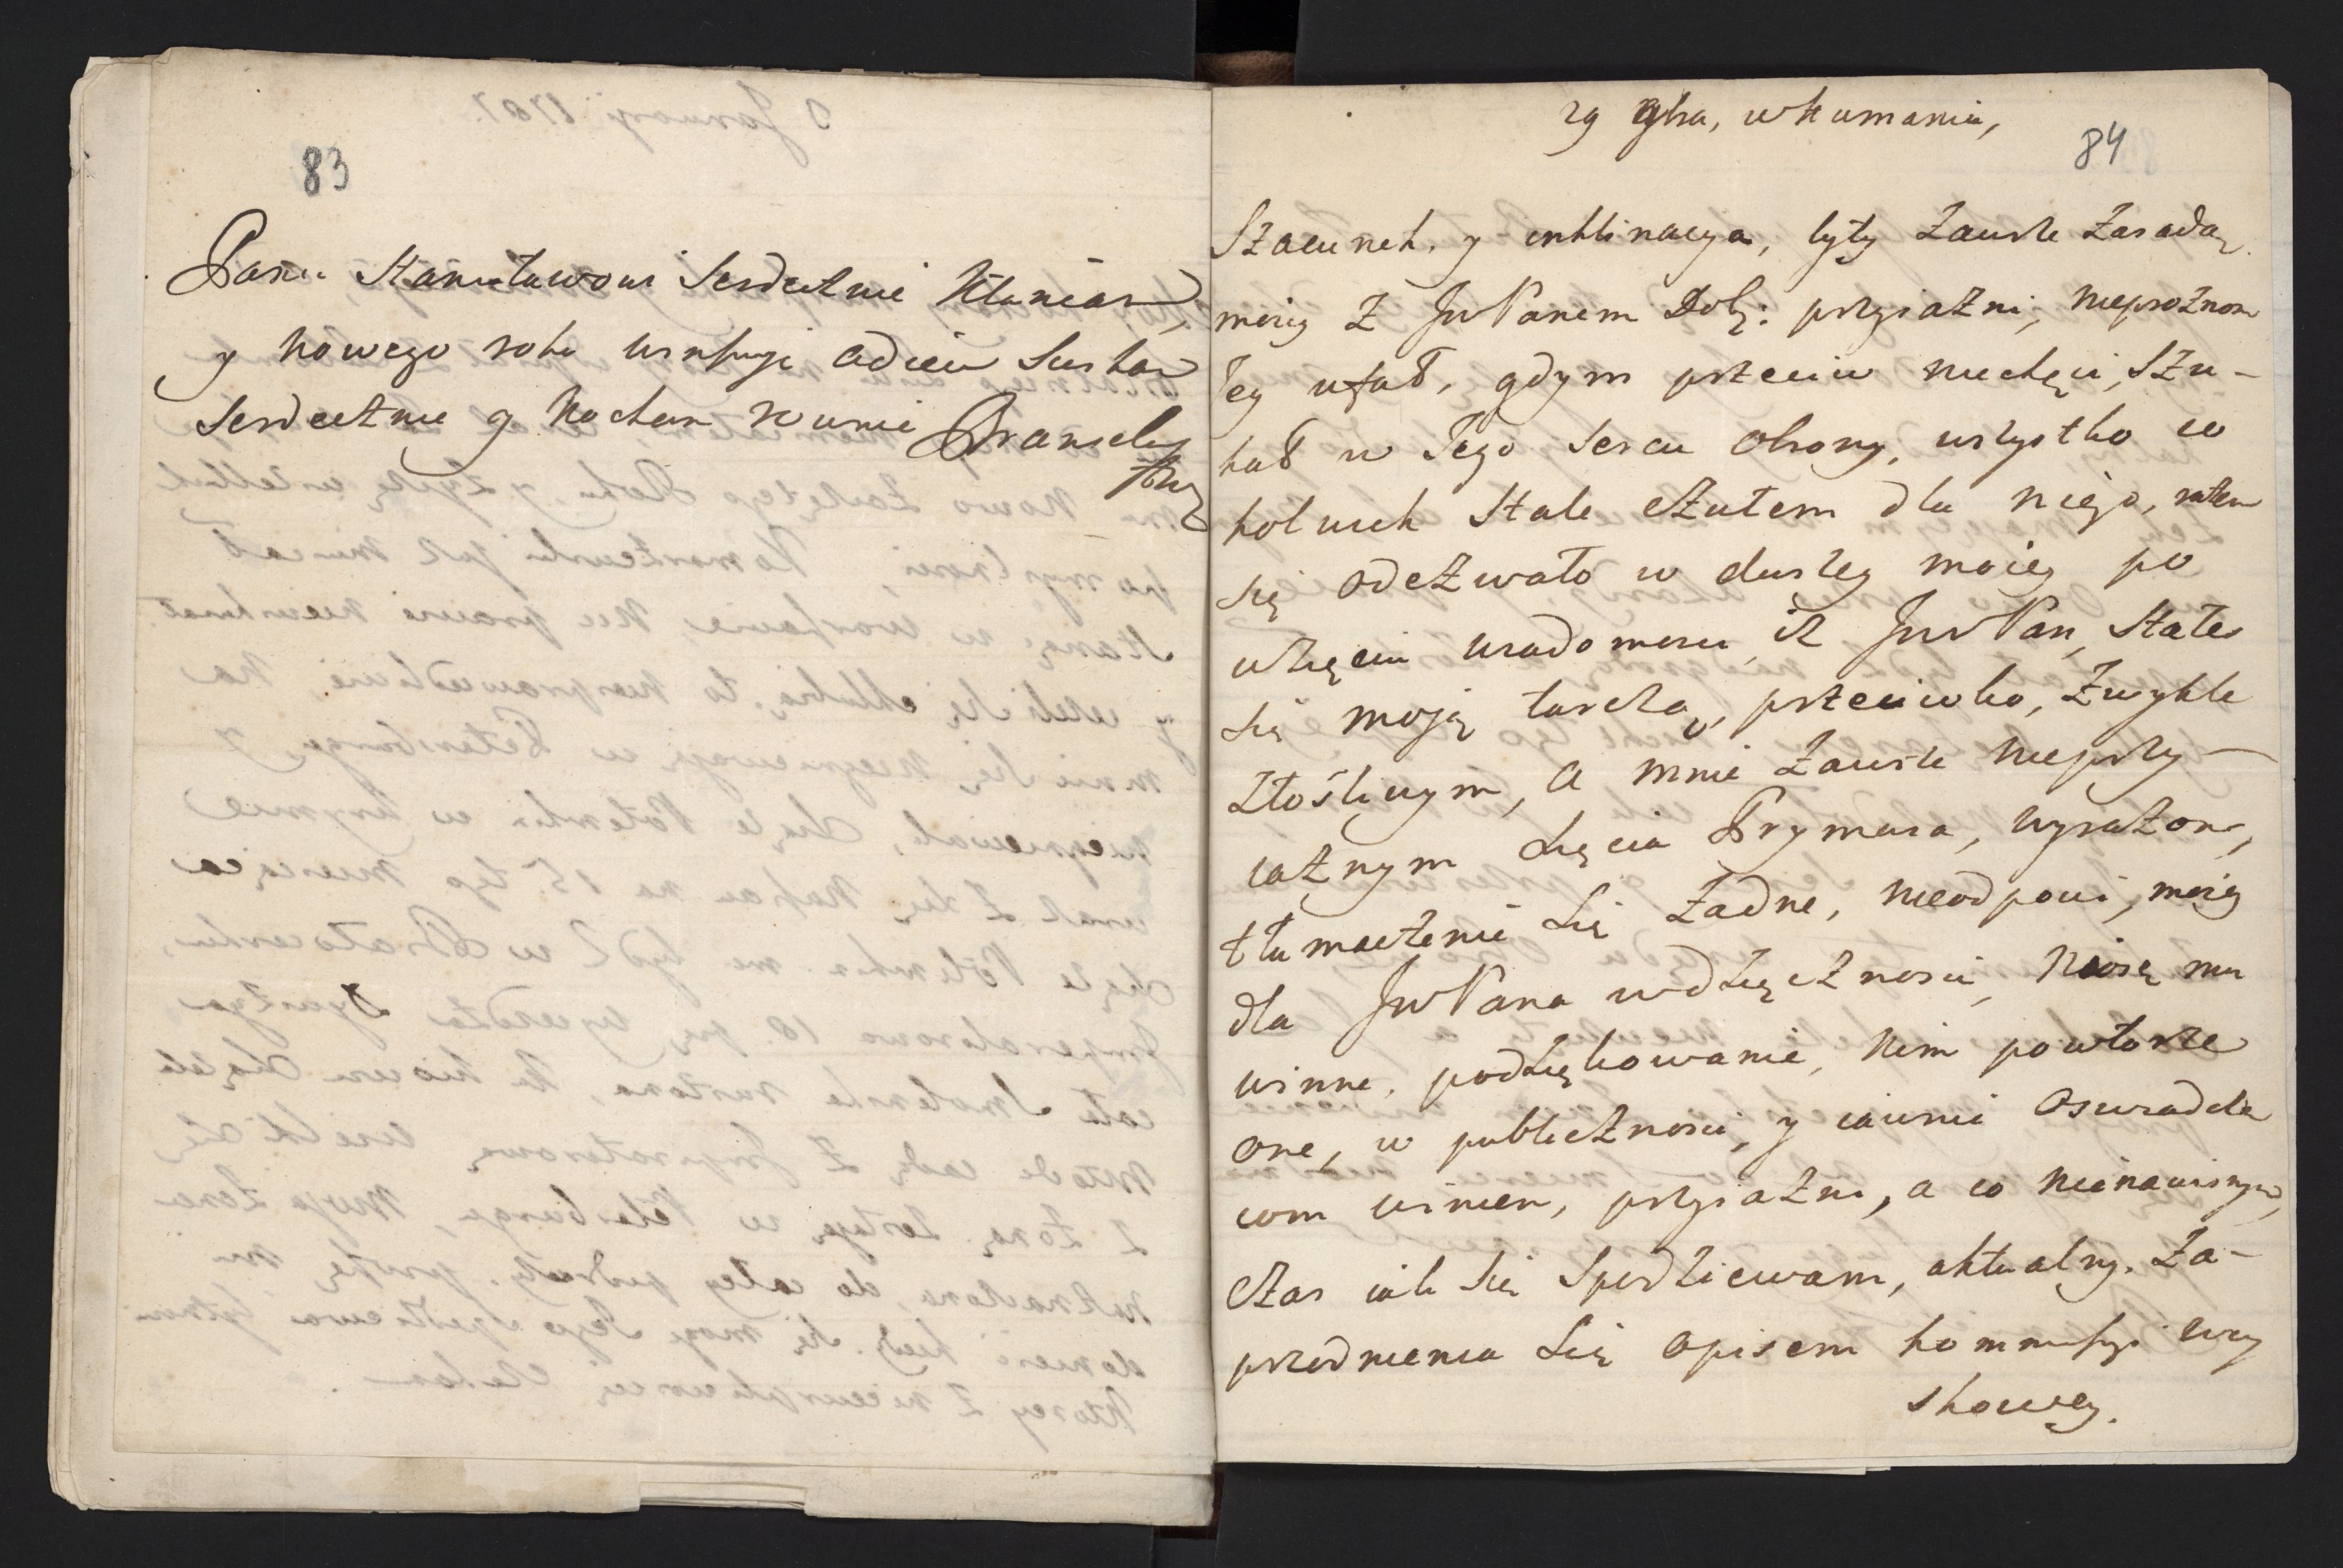 83
Panu Stanisławowi Serdecznie kłaniam,
y nowego roku winszuję adieu Sciskam
Serdecznie y Kocham rownie Branicki
29 9bra, w Humaniu,
84
Szacunek, y inklinacya, były zawsze zasadą
moiey z JwPanem Dob: przyiazni, nieprożnom
Jey ufał, gdym przeciw niechęci, szu-
kał w Jego sercu obrony, wszystko co
kolwiek stale czułem dla niego, razem
się odezwało w duszy moiey po
wzięciu wiadomosci, iż JwPan, stałes
się moją tarczą, przeciwko, zwykle
złośliwym, a mnie zawsze nieprzy-
iaznym Xięcia Prymasa, wyrazom,
tłumaczenie się żadne, nieodpowi, moiey
dla JwPana wdzięcznosci, Niosę mu
winne, podziękowanie, nim powtorze
one, w publicznosci, y iawnie oswiadcze
com winien, przyiazni, a co nienawisnym,
czas iak się spodziewam, aktualny. za-
przodnienia się opisem kommissyi woy
skowey.